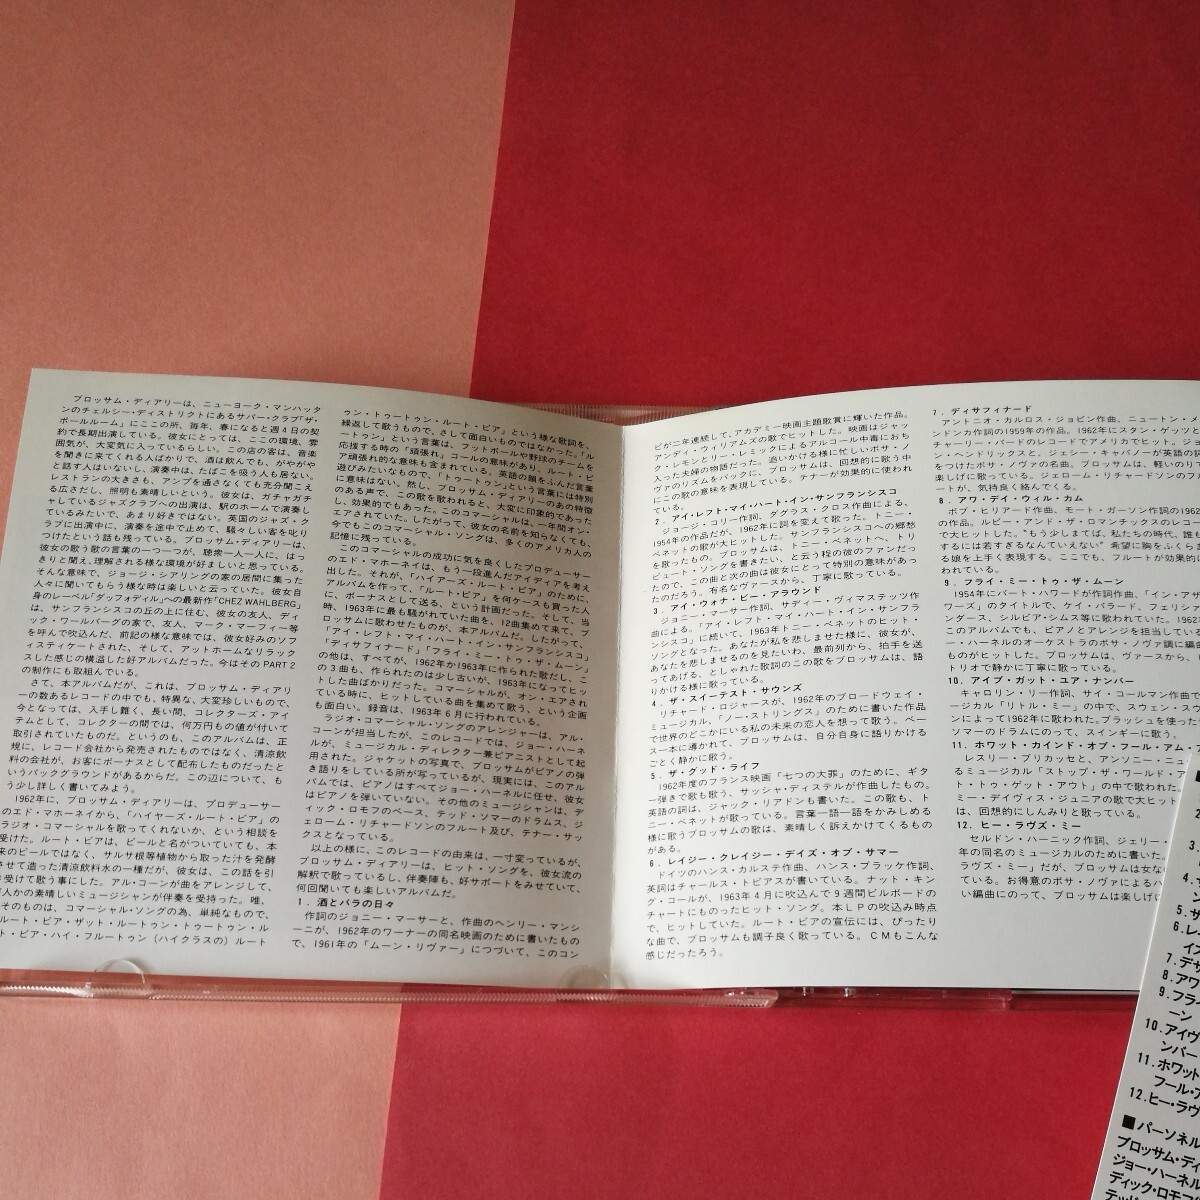 ブロッサム・ディアリーは、ニューヨーク・マンハッタ
ンのチェルシー・ディストリクトにあるサパー・クラブ「ザ・
ボールルーム」にここの所、毎年、春になると週４日の契
約で長期出演している。彼女にとっては、ここの環境、雰
囲気が、大変気に入っているらしい。この店の客は、音楽
を聞きに来てくれる人ばかりで、酒は飲んでも、がやがや
と話す人はいないし、演奏中は、たばこを吸う人も居ない。
レストランの大きさも、アンプを通さなくても充分聞こえ
る広さだし、照明も素晴しいという。彼女は、ガチャガチ
ャしているジャズクラブへの出演は、駅のホームで演奏し
ているみたいで、あまり好きではない。英国のジャズ・ク
ラブに出演中に、演奏を途中で止めて、騒々しい客を叱り
つけたという話も残っている。ブロッサム・ディアリーは、
彼女の歌う歌の言葉の一つ一つが、聴衆一人一人に、はっ
きりと聞え、理解される様な環境が好ましいと思っている。
そんな意味で、ジョージ・シアリングの家の居間に集った
人々に聞いてもらう様な時は楽しいと云っていた。彼女自
身のレーベル「ダッフォディル」への最新作「CHEZ WAHLBERG」
は、サンフランシスコの丘の上に住む、彼女の友人、ディ
ック・ワールバーグの家で、友人、マーク・マーフィー等
を呼んで吹込んだ、前記の様な意味では、彼女好みのソフ
ィスティケートされた、そして、アットホームなリラック
スした感じの横溢した好アルバムだった。今はその PART 2
の制作にも取組んでいる。
さて、本アルバムだが、これは、ブロッサム・ディアリ
ーの数あるレコードの中でも、特異な、大変珍しいもので、
今となっては、入手し難く、長い間、コレクターズ・アイ
テムとして、コレクターの間では、何万円もの値が付いて
取引されていたものだ。というのも、このアルバムは、正
規に、レコード会社から発売されたものではなく、清涼飲
料の会社が、お客にボーナスとして配布したものだったと
いうバックグラウンドがあるからだ。この辺について、も
う少し詳しく書いてみよう。
1962年に、ブロッサム・ディアリーは、プロデューサー
のエド・マホーネイから、「ハイヤーズ・ルート・ビア」の
ラジオ・コマーシャルを歌ってくれないか、という相談を
受けた。ルート・ビアは、ビールと名がついていても、本
来のビールではなく、サルサ根等植物から取った汁を発酵
させて造った清涼飲料水の一種だが、彼女は、この話を引
き受けて歌う事にした。アル・コーンが曲をアレンジして、
人かの素晴しいミュージシャンが伴奏を受持った。唯、
そのものは、コマーシャル・ソングの為、単純なもので、
ルート・ビア・ザット・ルートゥン・トゥートゥン・ル
ト・ビア・ハイ・フルートゥン（ハイクラスの）ルート
ゥン・トゥートゥン・ルート・ビア」という様な歌詞を、
繰返して歌うもので、さして面白いものではなかった。「ル
ートゥン」という言葉は、フットボールや野球のチームを
応援する時の「頑張れ」コールの意味があり、ルート・ビ
ア頑張れ的な意味も含まれている。英語の韻をふんだ言葉
遊びみたいなもので、「トゥートゥン」という言葉には特別
に意味はない。然し、ブロッサム・ディアリーのあの特徴
のある声で、この歌を歌われると、大変に印象的であった
し、効果的でもあった。このコマーシャルは、一年間オン・
エアされていた。したがって、彼女の名前を知らなくても、
今でもこのコマーシャル・ソングは、多くのアメリカ人の
記憶に残っている。
このコマーシャルの成功に気を良くしたプロデューサー
のエド・マホーネイは、もう一段進んだアイディアを考え
出した。それが、「ハイアーズ・ルート・ビア」のために、
アルバムを作って、「ルート・ビア」を何ケースも買った人
に、ボーナスとして送る、という計画だった。そして、当
時、1963年に最も騒がれていた曲を、12曲集めて来て、ブ
ロッサムに歌わせたものが、本アルバムだ。したがって、
「アイ・レフト・マイ・ハート・イン・サンフランシスコ」
「ディサフィナード」「フライ・ミー・トゥ・ザ・ムーン」
の他は、すべてが、1962年か1963年に作られた歌だし、こ
の３曲も、作られたのは少し古いが、1963年になってヒッ
トした曲ばかりだった。コマーシャルが、オン・エアされ
ている時に、ヒットしている曲を集めて歌う、という企画
も面白い。録音は、1963年６月に行われている。
ラジオ・コマーシャル・ソングのアレンジャーは、アル・
コーンが担当したが、このレコードでは、ジョー・ハーネ
ルが、ミュージカル・ディレクター兼ピアニストとして起
用された。ジャケットの写真で、ブロッサムがピアノの弾
き語りをしている所が写っているが、現実には、このアル
バムでは、ピアノはすべてジョー・ハーネルに任せ、彼女
はピアノを弾いていない。その他のミュージシャンは、デ
ィック・ロモフのベース、テッド・ソマーのドラムス、ジ
ェローム・リチャードソンのフルート及び、テナー・サッ
クスとなっている。
以上の様に、このレコードの由来は、一寸変っているが、
ブロッサム・ディアリーは、ヒット・ソングを、彼女流の
解釈で歌っているし、伴奏陣も、好サポートをみせていて、
何回聞いても楽しいアルバムだ。
1．酒とバラの日々
作詞のジョニー・マーサーと、作曲のヘンリー・マンシ
ーニが、1962年のワーナーの同名映画のために書いたもの
で、1961年の「ムーン・リヴァー」につづいて、このコン
ビが二年連続して、アカデミー映画主題歌賞に輝いた作品。
アンディ・ウィリアムズの歌でヒットした。映画はジャッ
ク・レモンとリー・レミックによるアルコール中毒におち
入った夫婦の物語だった。追いかける様に忙しいボサ・ノ
ヴァのリズムをバックに、ブロッサムは、回想的に歌う中
にこの歌の意味を表現している。テナーが効果的に使われ
ている。
2．アイ・レフト・マイ・ハート・イン・サンフランシスコ
ジョージ・コリー作詞、ダグラス・クロス作曲による、
1954年の作品だが、1962年に詞を変えて歌った、トニー・
ベネットの歌が大ヒットした。サンフランシスコへの郷愁
を歌ったもの。ブロッサムは、トニー・ベネットへ、トリ
ビュート・ソングを書きたい、と云う程の彼のファンだっ
たので、この曲と次の曲は彼女にとって特別の意味があっ
たのだろう。有名なヴァースから、丁寧に歌っている。
3．アイ・ウォナ・ビー・アラウンド
ジョニー・マーサー作詞、サディー・ヴィマステッツ作
曲による。「アイ・レフト・マイ・ハート・イン・サンフラ
ンシスコ」に続いて、1963年トニー・ベネットのヒット・
ソングとなった。あなたが私を悲しませた様に、彼女が、
あなたを悲しませるのを見たいわ、最前列から、拍手を送
ってあげる、としゃれた歌詞のこの歌をブロッサムは、語
りかける様に歌っている。
4．ザ・スイーテスト・サウンズ
リチャード・ロジャースが、1962年のブロードウェイ・
ミュージカル、「ノー・ストリングス」のために書いた作品
で世界のどこかにいる私の未来の恋人を想って歌う。ベー
ス一本に導かれて、ブロッサムは、自分自身に語りかける
ごとく静かに歌う。
5．ザ・グッド・ライフ
1962年度のフランス映画「七つの大罪」のために、ギタ
ー弾きで歌も歌う、サッシャ・ディステルが作曲したもの。
英語の詞は、ジャック・リアドンも書いた。この歌も、ト
ニー・ベネットが歌っている。言葉一語一語をかみしめる
様に歌うブロッサムの歌は、素晴しく訴えかけてくるもの
がある。
6．レイジー・クレイジー・デイズ・オブ・サマー
ドイツのハンス・カルステ作曲、ハンス・ブラッケ作詞、
英詞はチャールス・トビアスが書いている。ナット・キン
グ・コールが、1963年４月に吹込んで９週間ビルボードの
チャートにものったヒット・ソング。本ＬＰの吹込み時点
で、ヒットしていた。ルート・ビアの宣伝には、ぴったり
な曲で、ブロッサムも調子良く歌っている。ＣＭもこんな
感じだったろう。
7．ディサフィナード
アントニオ・カルロス・ジョビン作曲、ニュートン・メ
ンドンカ作詞の1959年の作品。1962年にスタン・ゲッツと
チャーリー・バードのレコードでアメリカでヒット。ジョ
ン・ヘンドリックスと、ジェシー・キャバノーが英語の詞
をつけたボサ・ノヴァの名曲。ブロッサムは、軽いのりで
楽しげに歌っている。ジェローム・リチャードソンのフル
ートが、気持良く絡んでくる。
8．アワ・デイ・ウィル・カム
ボブ・ヒリアード作曲、モート・ガーソン作詞の1962
の作品。ルビー・アンド・ザ・ロマンチックスのレコー
で大ヒットした。"もう少しまてば、私たちの時代、誰も
するには若すぎるなんていえない" 希望に胸をふくらま
る娘を上手く表現する。ここでも、フルートが効果的に
われている。
9．フライ・ミー・トゥ・ザ・ムーン
1954年にバート・ハワードが作詞作曲、「イン・アザ
ワーズ」のタイトルで、ケイ・バラード、フェリシア
ンダース、シルビア・シムス等に歌われていた。1962
このアルバムでも、ピアノとアレンジを担当している
ー・ハーネルのオーケストラのボサ・ノヴァ調に編曲
ものがヒットした。ブロッサムは、ヴァースから、ピ
トリオで静かに丁寧に歌っている。
10．アイブ・ガット・ユア・ナンバー
キャロリン・リー作詞、サイ・コールマン作曲で
ージカル「リトル・ミー」の中で、スウェン・スウ
ンによって1962年に歌われた。ブラッシュを使った
ソマーのドラムにのって、スインギーに歌う。
11．ホワット・カインド・オブ・フール・アム・ア
レスリー・ブリカッセと、アンソニー・ニュー
るミュージカル「ストップ・ザ・ワールド・ア
ト・トゥ・ゲット・アウト」の中で歌われた。
ミー・デイヴィス・ジュニアの歌で大ヒット
は、回想的にしんみりと歌っている。
12．ヒー・ラヴズ・ミー
セルドン・ハーニック作詞、ジェリー・
年の同名のミュージカルのために書いた。
ラヴズ・ミー」だが、ブロッサムは女な
ている。お得意のボサ・ノヴァによるハ
い編曲にのって、ブロッサムは楽しげに
2.
3.
4.
5.サ
6.レ
イ
7.デサ
8.アワ
9.フラ
ーン
10.アイヴ
ンバー
11.ホワット
フール・ア
12.ヒー・ラヴ
■パーソネル
ブロッサム・ディ
ジョー・ハーネル
ディック・ロモ